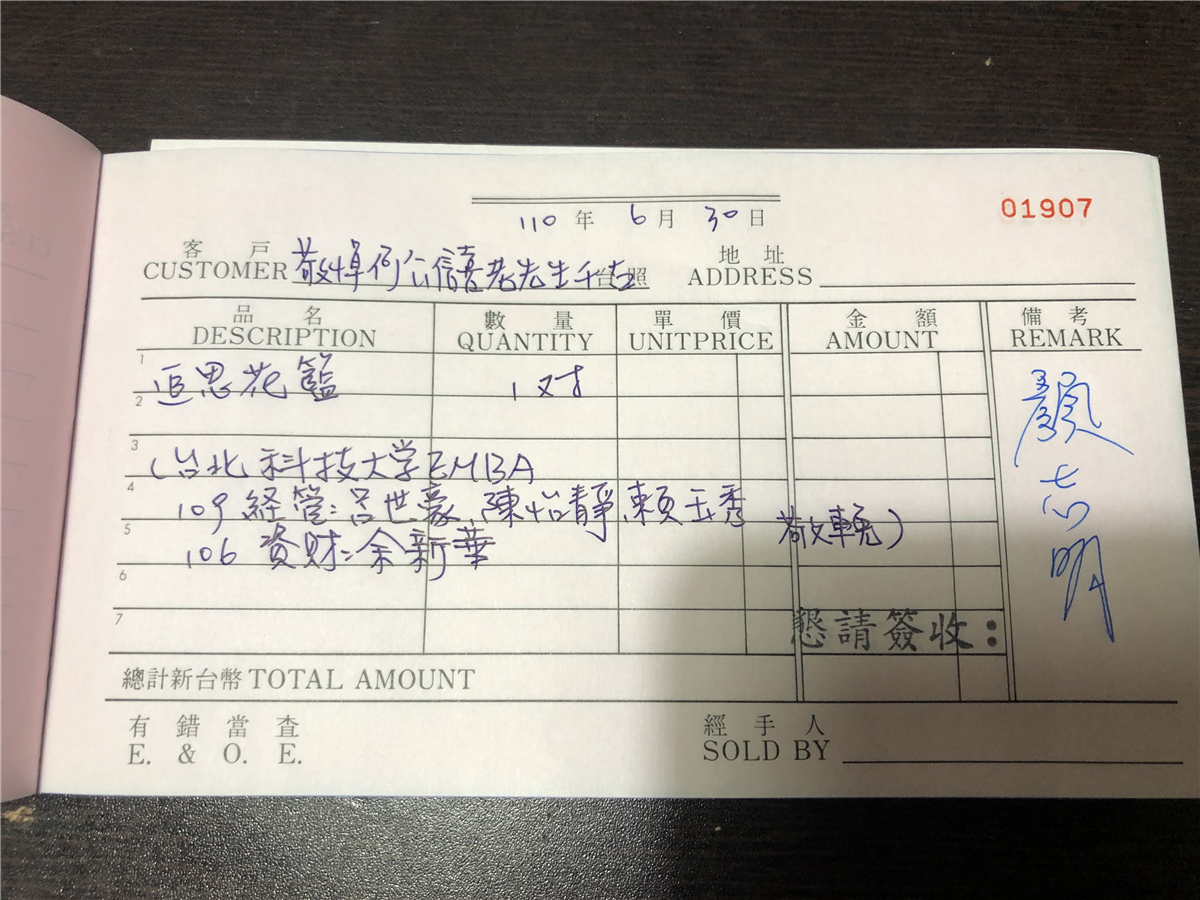 110 年 6 月 30 日
01907
客戶 敬悼何公信喜老先生千古 台照 地址
CUSTOMER ADDRESS
品名 數量 單價 金額 備考
DESCRIPTION QUANTITY UNITPRICE AMOUNT REMARK
1 追思花籃 1对
2
3 (台北科技大学EMBA
4 109 経管:呂世豪、陳怡靜、賴玉秀
5 106 資財:余新華 敬輓)
顏志明
6
7 懇請簽收:
總計新台幣 TOTAL AMOUNT
有錯當查 經手人
E. & O. E. SOLD BY